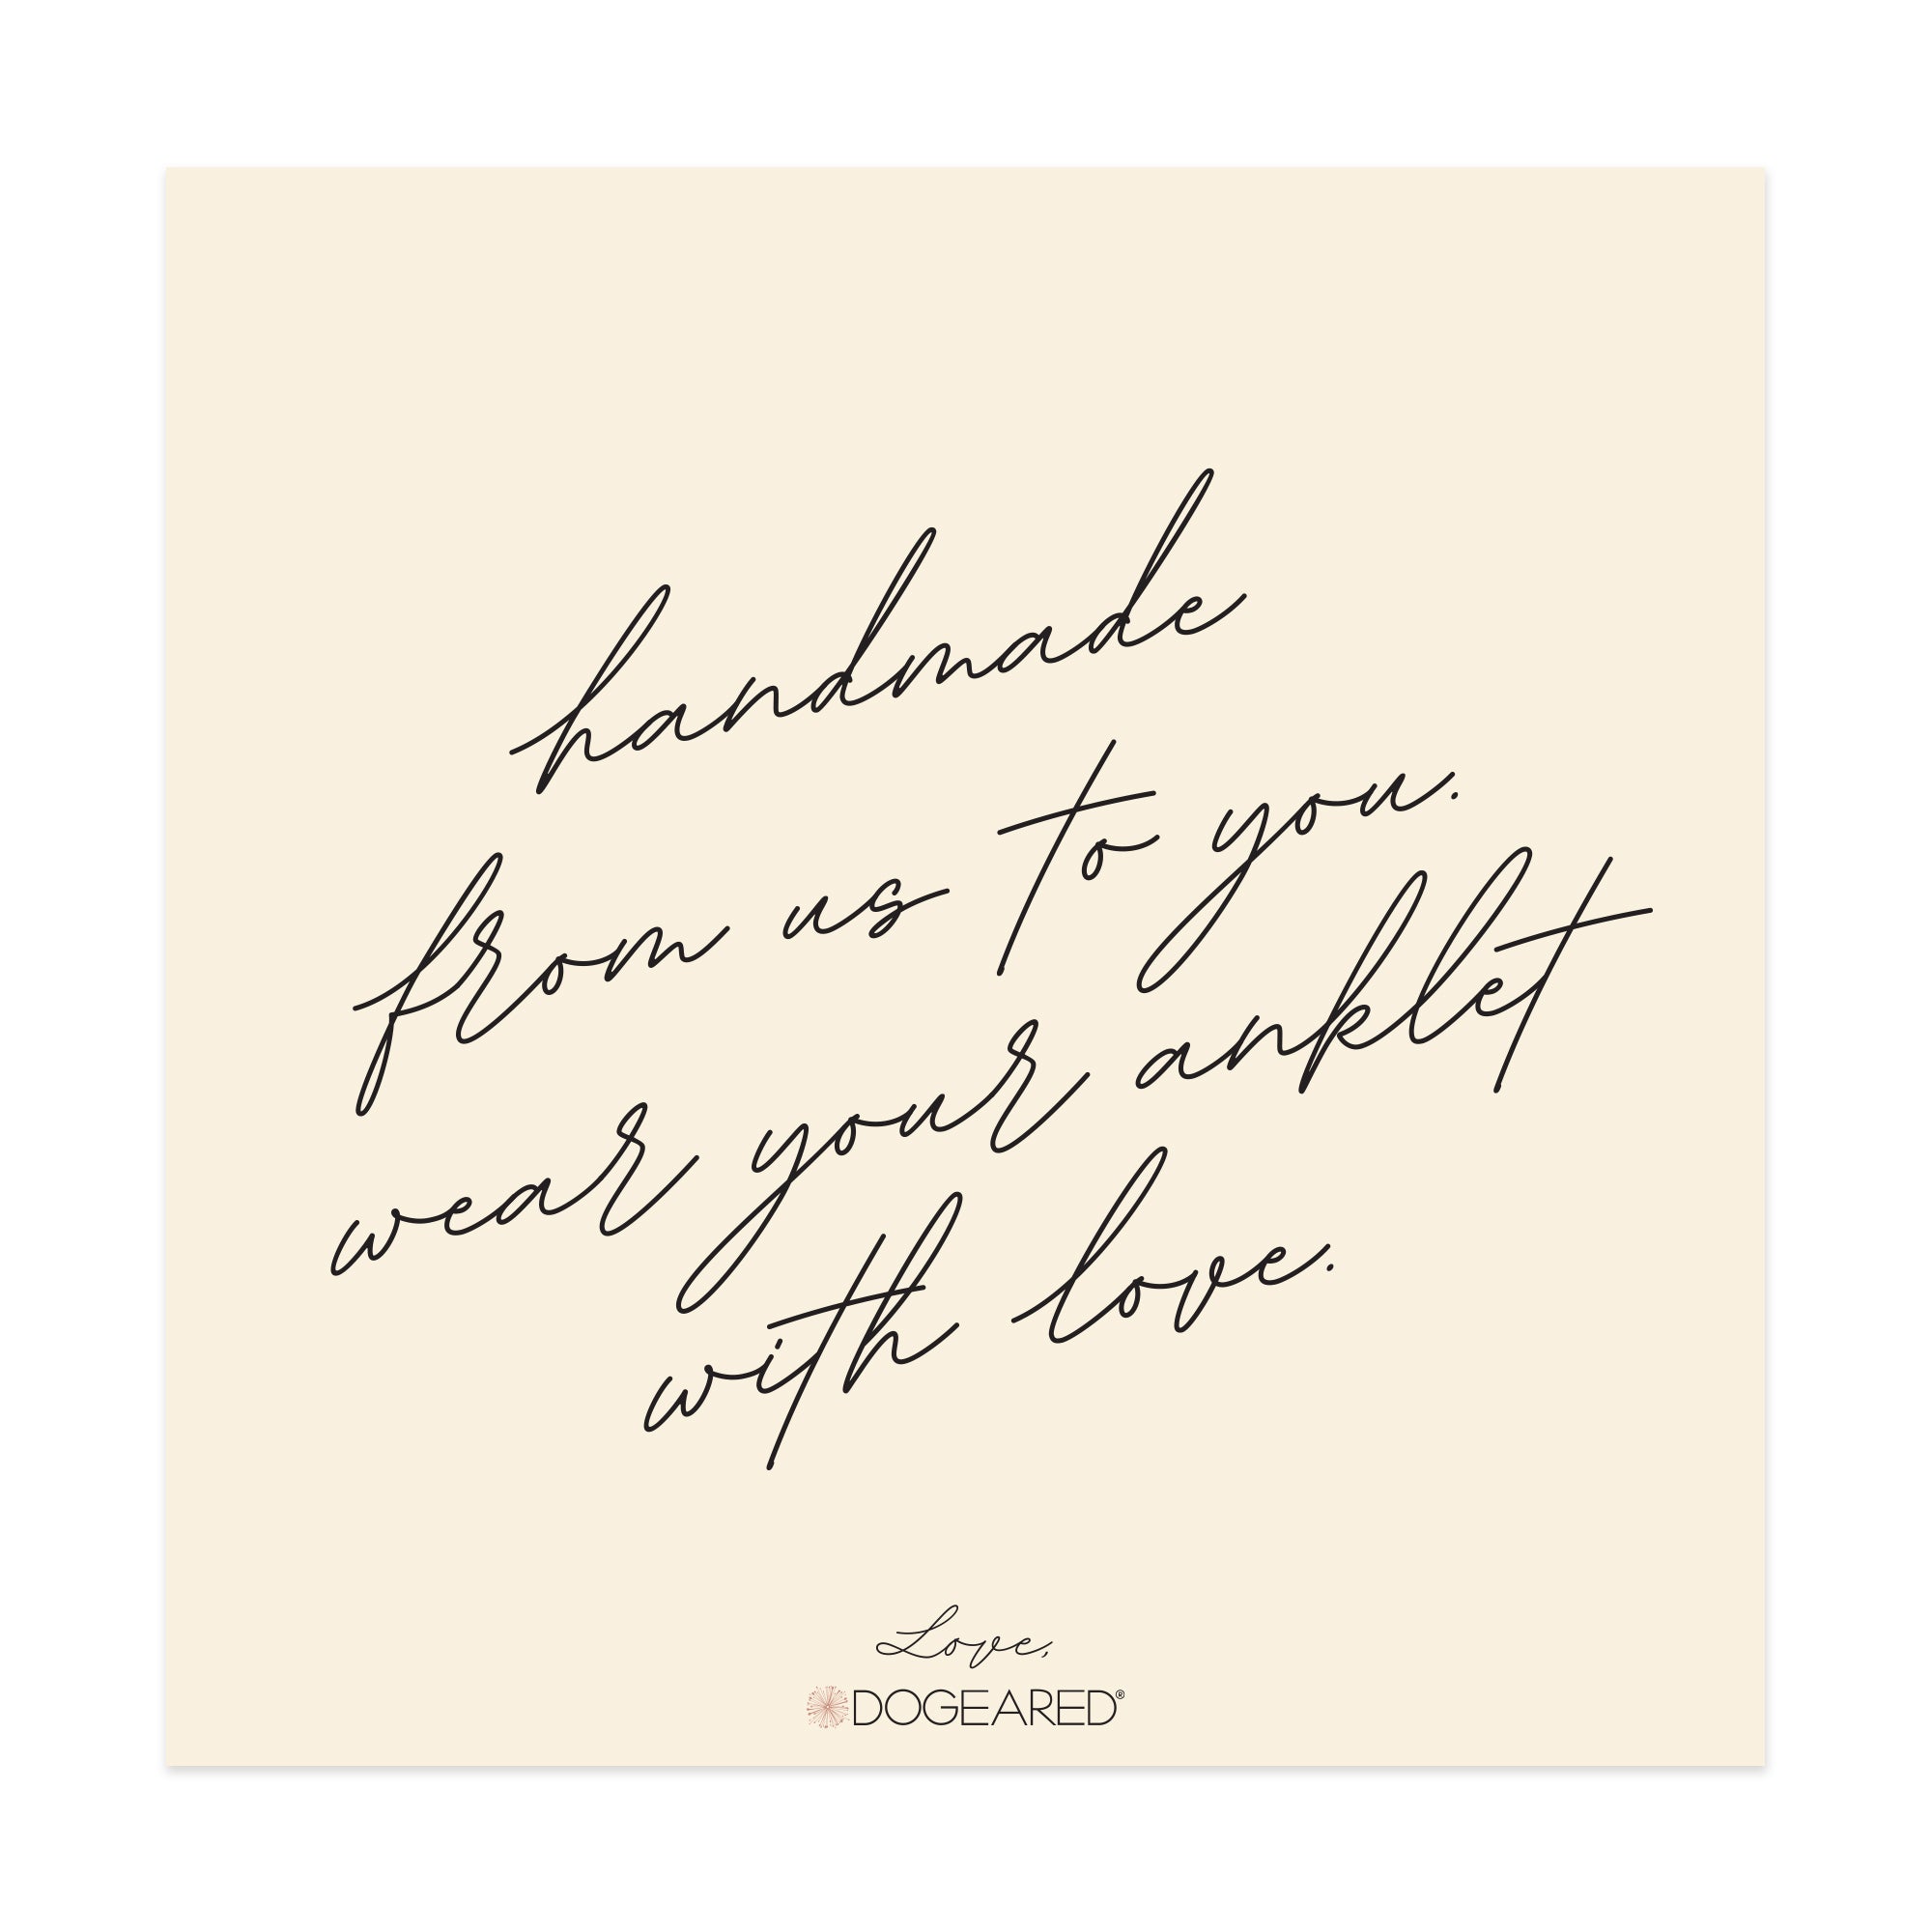 handmade
from us to you.
wear your anklet
with love.
Love,
DOGEARED®